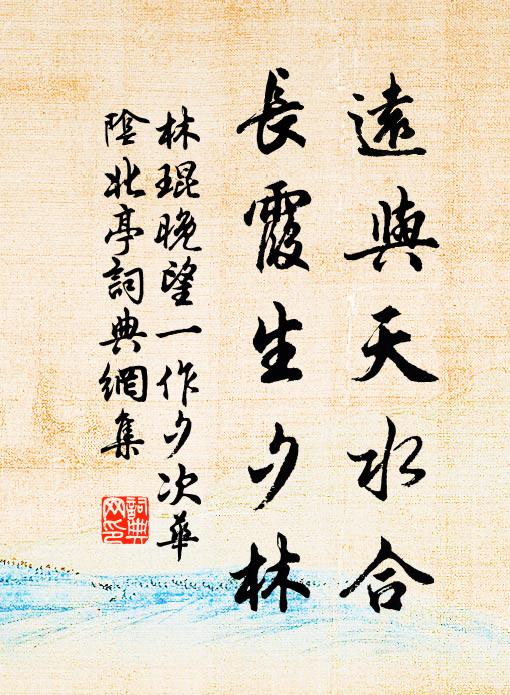 遠與天水合
長霞生夕林
林琨晚望一作夕次華
陰北亭詞典網集
詞典